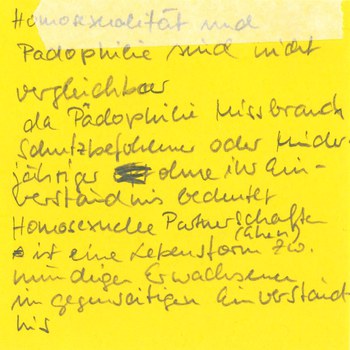 Homosexualität und
Pädophilie sind nicht
vergleichbar
da Pädophilie Missbrauch
Schutzbefohlener oder Minder-
jähriger ohne ihr Ein-
verständnis bedeutet
Homosexuelle Partnerschaften
(Ehen)
ist eine Lebensform zw.
mündigen Erwachsenen
im gegenseitigen Einverständ
nis